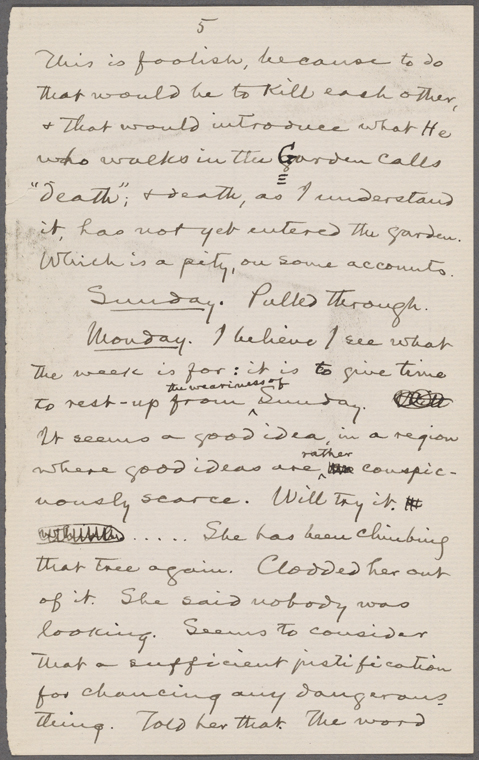 5
This is foolish, because to do
that would be to kill each other,
& that would introduce what He
who walks in the Garden calls
"death"; & death, as I understand
it, has not yet entered the garden.
Which is a pity, on some accounts.
Sunday. Pulled through.
Monday. I believe I see what
the week is for: it is to give time
the weariness of
to rest-up from Sunday.
It seems a good idea, in a region
rather
where good ideas are conspic-
uously scarce. Will try it.
..... She has been climbing
that tree again. Clodded her out
of it. She said nobody was
looking. Seems to consider
that a sufficient justification
for chancing any dangerous
thing. Told her that. The word